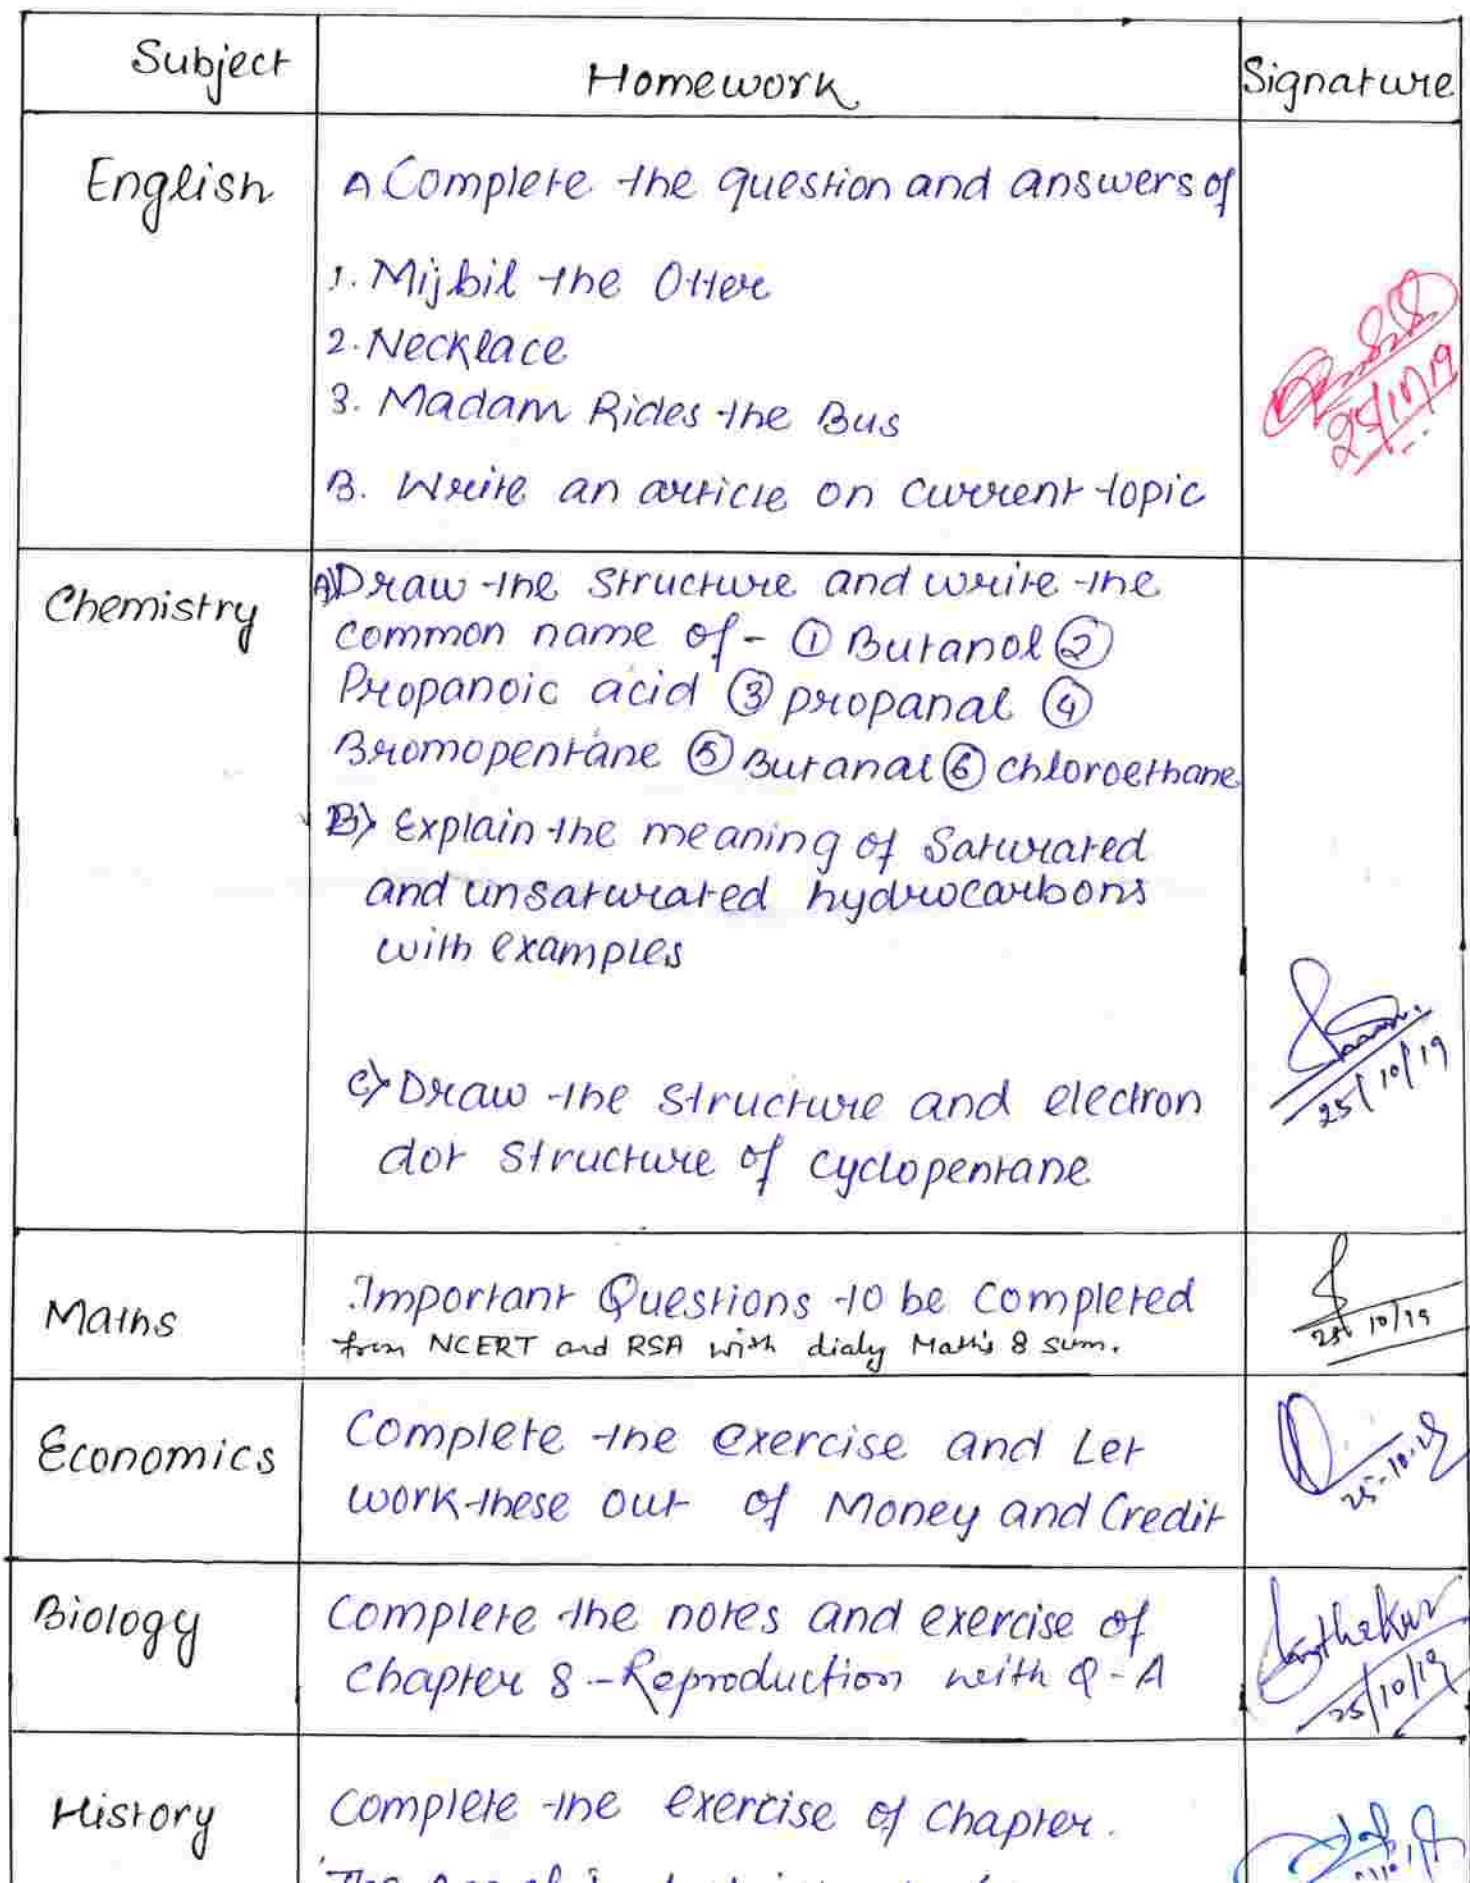 Subject Homework Signature
English A Complete the question and answers of
1. Mijbil the Otter
2. Necklace
3. Madam Rides the Bus
25/10/19
B. Write an article on current topic
Chemistry A) Draw the structure and write the
common name of - ① Butanol ②
Propanoic acid ③ propanal ④
Bromopentane ⑤ Butanal ⑥ chloroethane
B) Explain the meaning of saturated
and unsaturated hydrocarbons
with examples
25/10/19
C) Draw the structure and electron
dot structure of cyclopentane
Maths Important Questions to be completed
from NCERT and RSA with dialy Maths 8 sum.
25/10/19
Economics Complete the exercise and Let
work these out of Money and Credit
25-10-19
Biology Complete the notes and exercise of
Chapter 8 - Reproduction with Q - A
25/10/19
History Complete the exercise of Chapter.